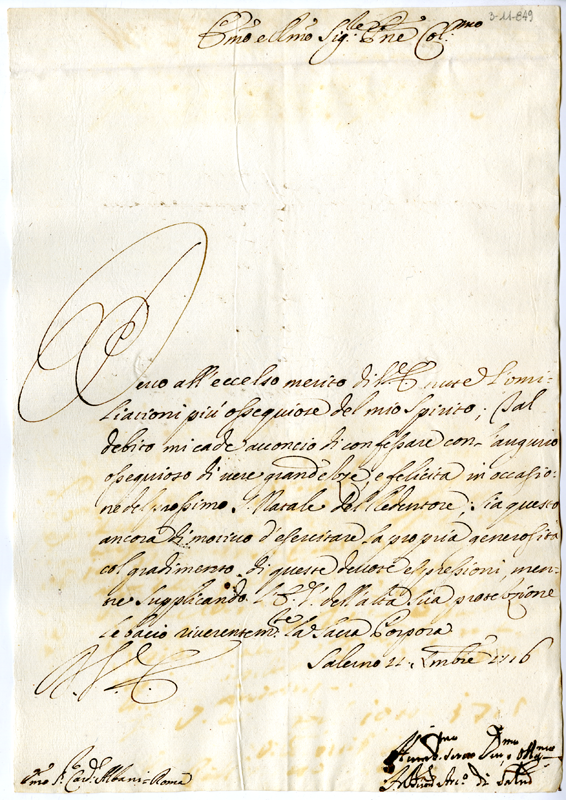 3-11-849
Em̃o e Rm̃o Sig.re P̃ne Col.mo
Devo all'eccelso merito di V. E. tutte l'omi-
liationi più ossequiose del mio spirito; e tal
debito mi cade acconcio di confessare con l'augurio
ossequioso di vere grandezze, e felicità in occasio-
ne del prossimo S. Natale del Redentore: Sia questo
ancora di motivo d'esercitare la propria generosità
col gradimento di queste devote espressioni, men-
tre supplicando V. E. della alta sua protezzione
le bacio riverentem.te la Sacra Porpora
Salerno 1716
V. E.
Em̃o S.r Card. Albani Roma
Hum.o Servo
di Salerno